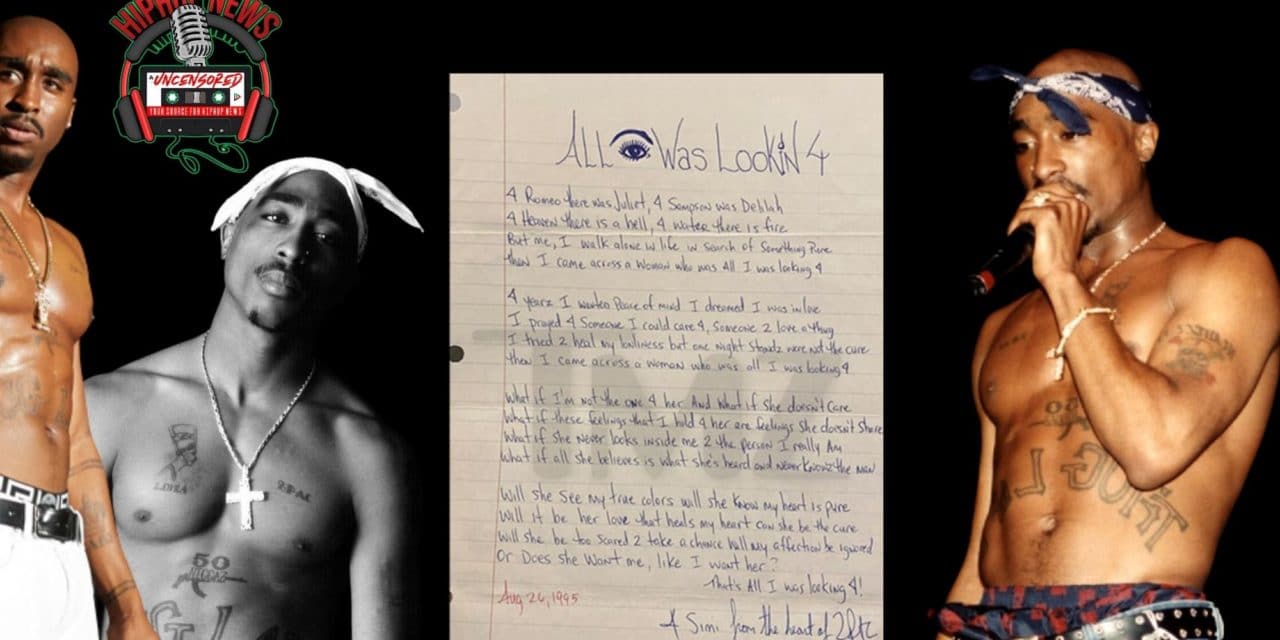 HIPHOP NEWS
UNCENSORED
YOUR SOURCE FOR HIPHOP NEWS
ALL 👁 Was LookIN 4
4 Romeo there was Juliet, 4 Sampson was Delilah
4 Heaven there is a hell, 4 water there is fire
But me, I walk alone in life in search of Something Pure
then I came across a Woman who was All I was looking 4
4 yearz I wanted Peace of mind I dreamed I was in love
I prayed 4 Someone I could care 4, Someone 2 love a thug
I tried 2 heal my lonliness but one night standz were not the cure
then I came across a woman who was all I was looking 4
What if I'm not the one 4 her And What if She doesn't Care
What if these feelings that I hold 4 her are feelings She doesn't Share
What if she Never looks inside me 2 the person I really Am
What if all she believes is what she's heard and never knowz the man
Will she See my true colors will she know my heart is pure
Will it be her love that heals my heart can she be the cure
Will she be too Scared 2 take a chance will my affection be ignored
Or Does she Want me, like I want her?
That's All I was looking 4!
Aug 26, 1995
4 Simi from the heart of 2PAC
TMZ
2PAC
50
THUG LIFE